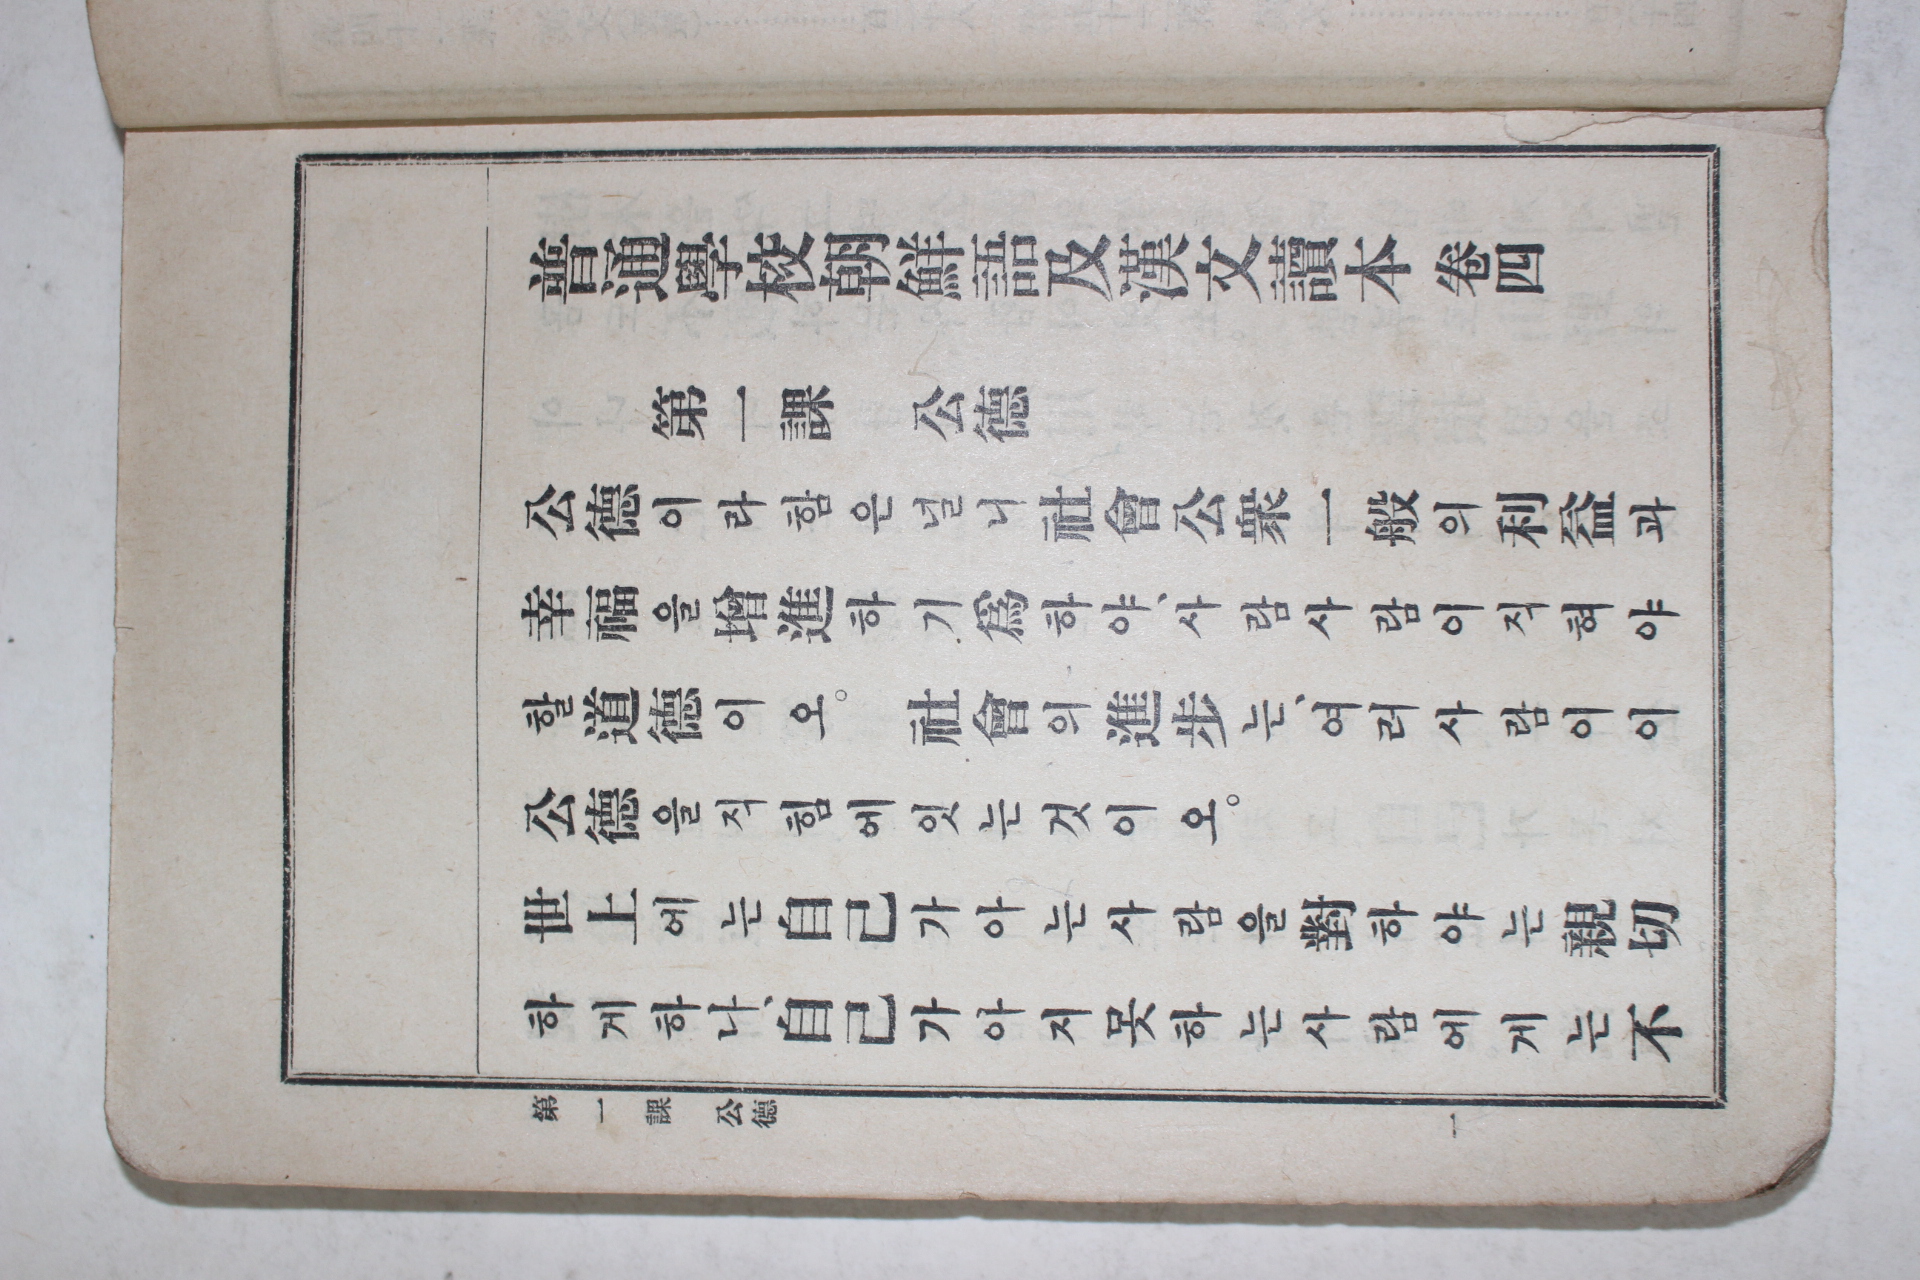 普通學校朝鮮語及漢文讀本 卷四
第一課 公德
公德이라함은널니社會公衆一般의利益과
幸福을增進하기爲하야、사람사람이직혀야
할道德이오。 社會의進步는、여러사람이이
公德을직힘에잇는것이오。
世上에는自己가아는사람을對하야는親切
하게하나、自己가아지못하는사람에게는不
第一課 公德
一